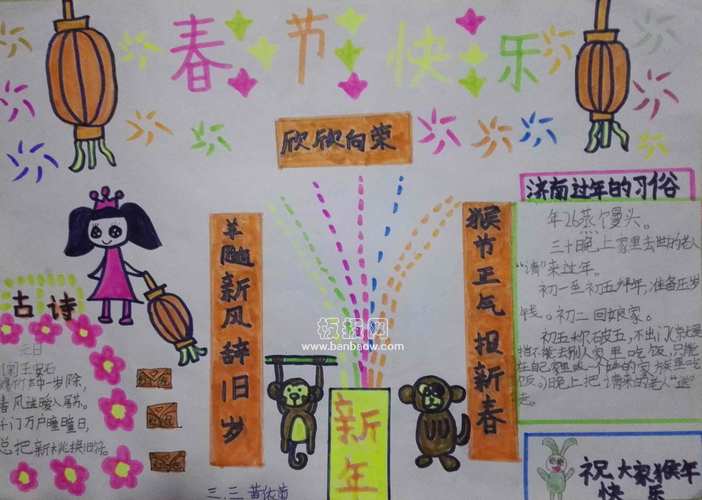 春节快乐
欣欣向荣
羊随新风辞旧岁
猴节正气报新春
新年
板报网
www.banbaow.com
古诗
元日
王安石
春风送暖入屠苏。
千门万户瞳瞳日,
总把新桃换旧符。
济南过年的习俗
年26蒸个馒头。
三十晚上家里去世的老人
“请”来过年。
初一至初五拜年,准备压岁
钱。初二回娘家。
初五称破五,不出门
指不能去别人家里吃饭,只能
晚上把请来的老人“送”
走。
祝大家猴年
快乐
三.三